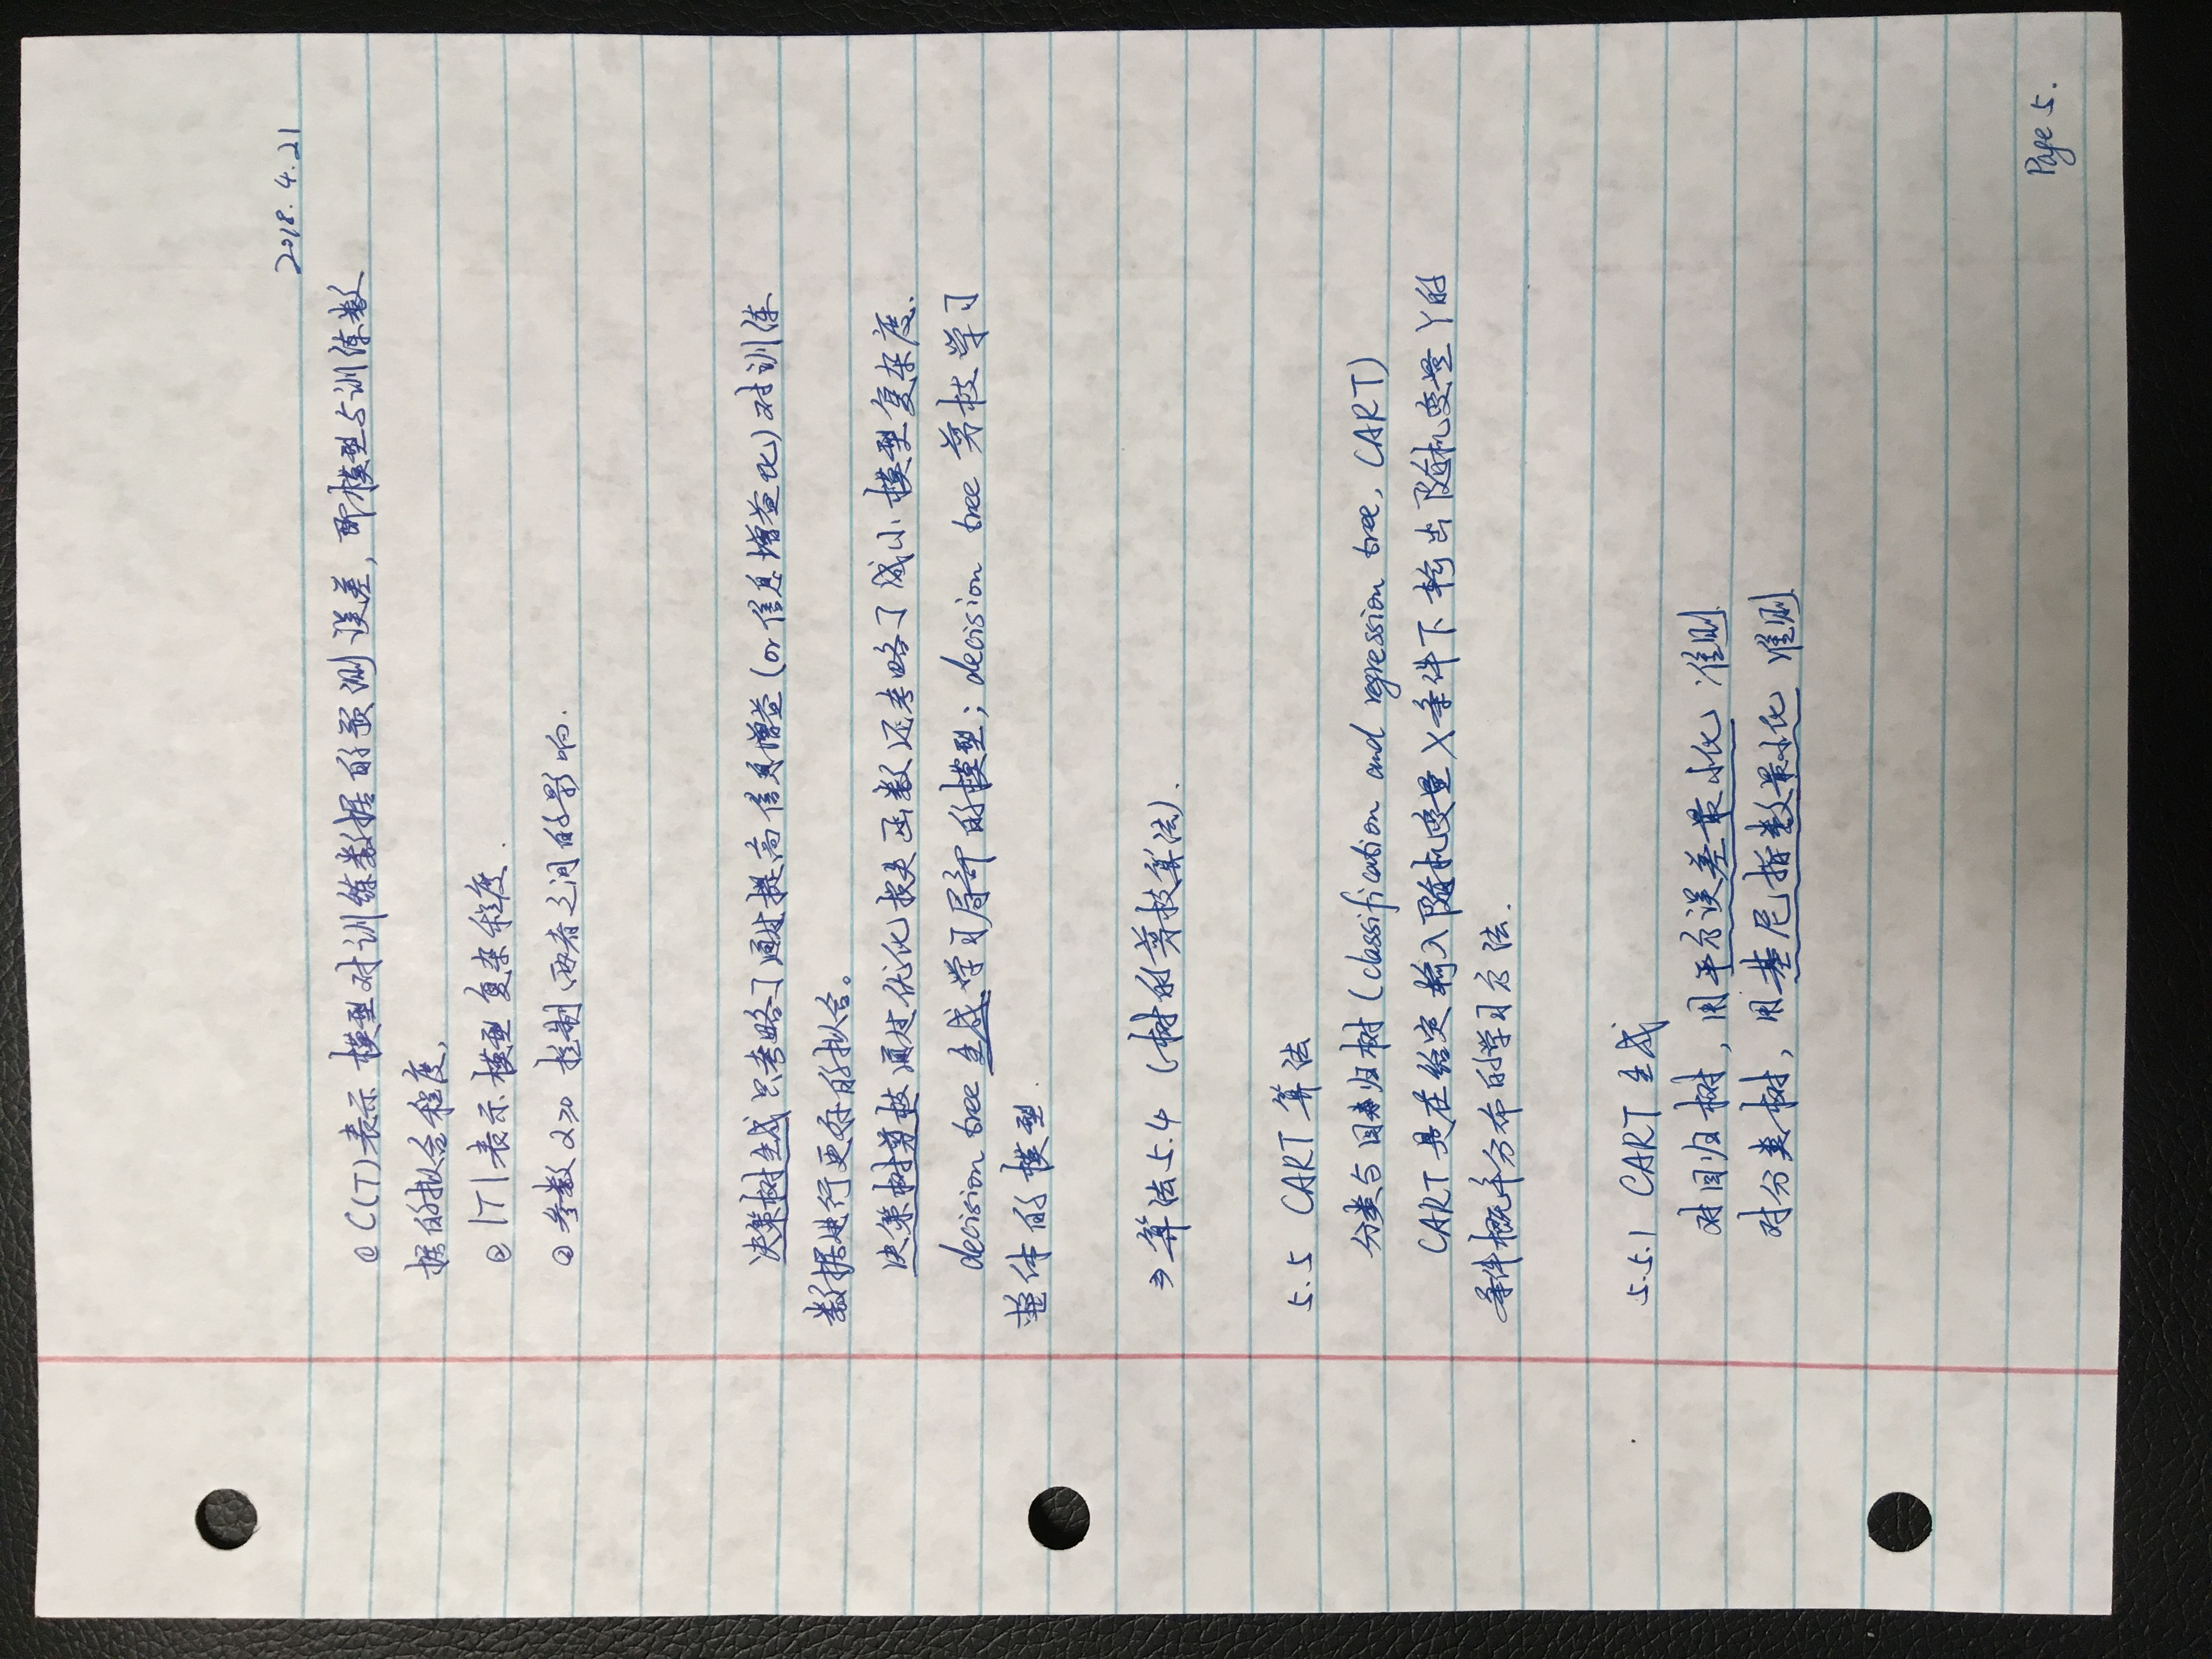 2018.4.21
@ C(T)表示 模型对训练数据的预测误差, 即模型与训练数
据的拟合程度,
@ |T|表示模型复杂程度.
@ 参数 α≥0 控制两者之间的影响.
决策树生成只考略了通过提高信息增益(or信息增益比)对训练
数据进行更好的拟合。
决策树剪枝通过优化损失函数还考略了减小模型复杂度.
decision tree 生成学习局部的模型; decision tree 剪枝学习
整体的模型.
⇒ 算法5.4 (树的剪枝算法).
5.5 CART 算法
分类与回归树 (classification and regression tree, CART)
CART是在给定输入随机变量X条件下输出随机变量Y的
条件概率分布的学习方法.
5.5.1 CART 生成
对回归树, 用平方误差最小化 准则.
对分类树, 用基尼指数最小化 准则.
Page 5.